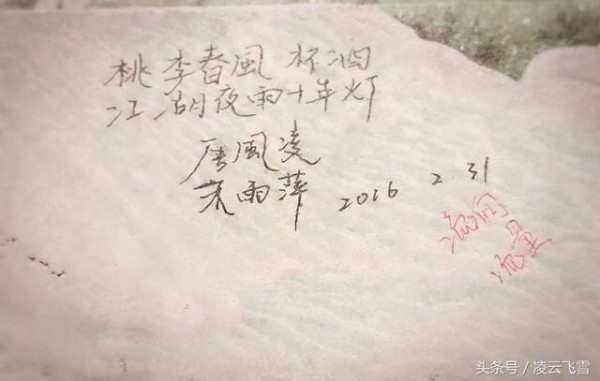 桃李春風 杯酒
江湖夜雨十年灯
唐風凌
宋雨萍 2016 2 31
头条号 / 凌云飞雪